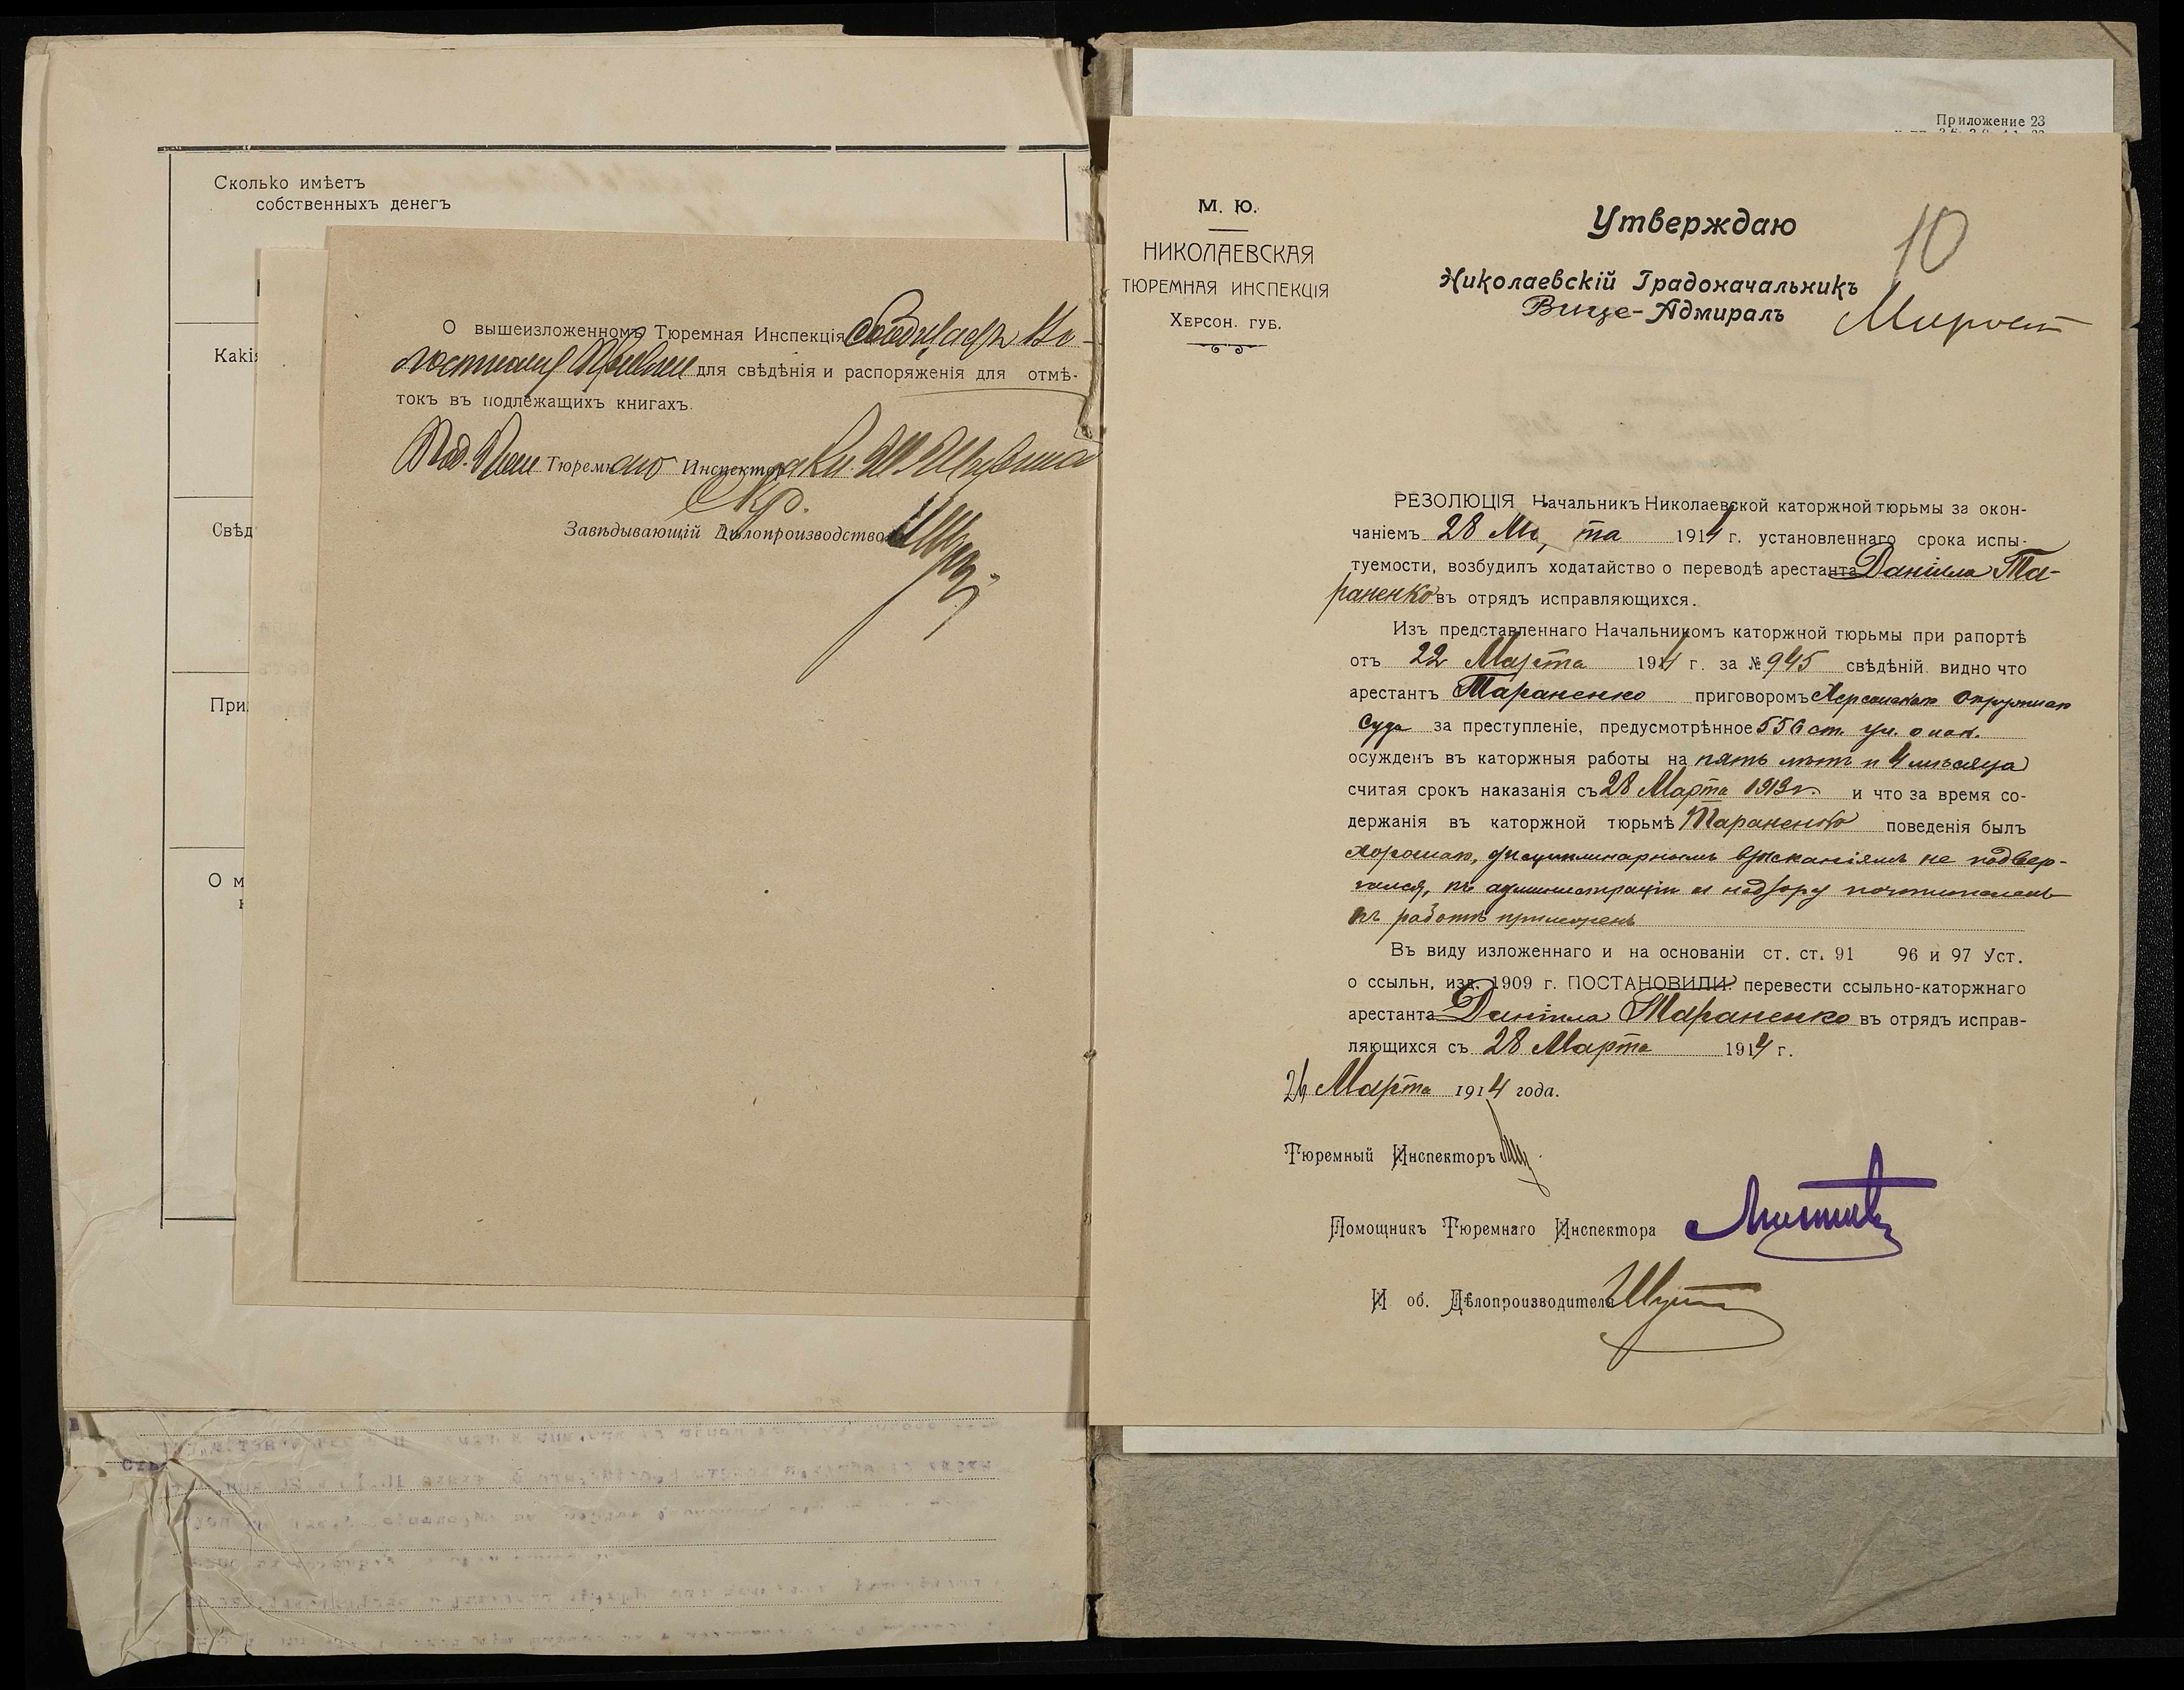 Сколько имѣетъ
собственныхъ денегъ
Какі
Свѣд
При
О м
О вышеизложенномъ Тюремная Инспекція сообщаетъ На-
для свѣдѣнія и распоряженія для отмѣ-
токъ въ подлежащихъ книгахъ.
Под. Тюремнаго Инспектора Кн.
Завѣдывающій Дѣлопроизводство
Приложение 23
М. Ю.
НИКОЛАЕВСКАЯ
ТЮРЕМНАЯ ИНСПЕКЦІЯ
ХЕРСОН. ГУБ.
10
Утверждаю
Николаевскій Градоначальникъ
Вице-Адмиралъ
РЕЗОЛЮЦІЯ Начальникъ Николаевской каторжной тюрьмы за окон-
чаніемъ 28 Марта 1914 г. установленнаго срока испы-
туемости, возбудилъ ходатайство о переводѣ арестанта Даніила Та-
раненко въ отрядъ исправляющихся.
Изъ представленнаго Начальникомъ каторжной тюрьмы при рапортѣ
отъ 22 Марта 1914 г. за № 945 свѣдѣній видно что
арестантъ Тараненко приговоромъ Херсонскаго Окружнаго
Суда за преступленіе, предусмотрѣнное 556 ст. ул. о нак.
осужденъ въ каторжныя работы на пять лѣтъ и 4 мѣсяца
считая срокъ наказанія съ 28 Марта 1913 г. и что за время со-
держанія въ каторжной тюрьмѣ Тараненко поведенія былъ
хорошаго, дисциплинарнымъ взысканіямъ не подвер-
гался, къ администраціи и надзору почтителенъ
къ работѣ прилеженъ
Въ виду изложеннаго и на основаніи ст. ст. 91 96 и 97 Уст.
о ссыльн. изд. 1909 г. ПОСТАНОВИЛИ: перевести ссыльно-каторжнаго
арестанта Даніила Тараненко въ отрядъ исправ-
ляющихся съ 28 Марта 1914 г.
26 Марта 1914 года.
Тюремный Инспекторъ
Помощникъ Тюремнаго Инспектора
И об. Дѣлопроизводителя